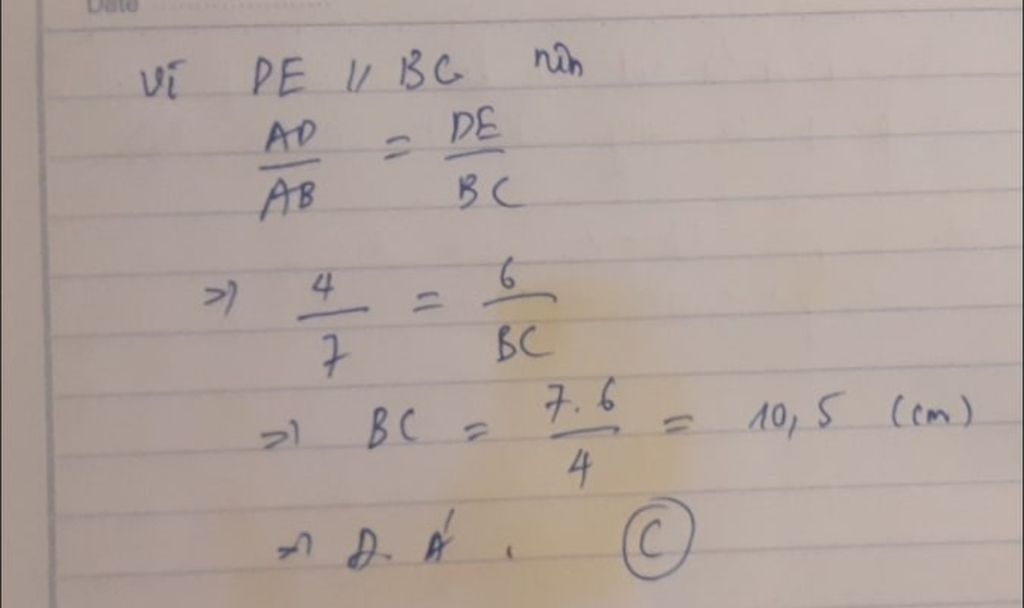 Date
Vì DE // BC nên
AD/AB = DE/BC
=> 4/7 = 6/BC
=> BC = 7.6/4 = 10,5 (cm)
=> D. Á. C